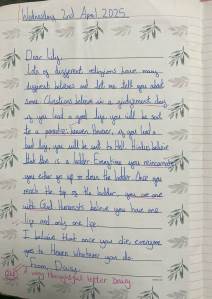 Wednesday 2nd April 2025
Dear Lily,
Lots of different religions have many
different believes and let me tell you about
some. Christians believe in a judgement day,
as you lead a good life you will be sent
to a paradise: heaven. However, if you lead a
bad life, you will be sent to Hell. Hindus believe
that there is a ladder. Everytime you reincarnate
you either go up or down the ladder. Once you
reach the top of the ladder, you are one
with God. Humanists believe you have one
life and only one life.
I believe that once you die, everyone
goes to Heaven whatever you do.
From, Daisy.
A very thoughtful letter Daisy